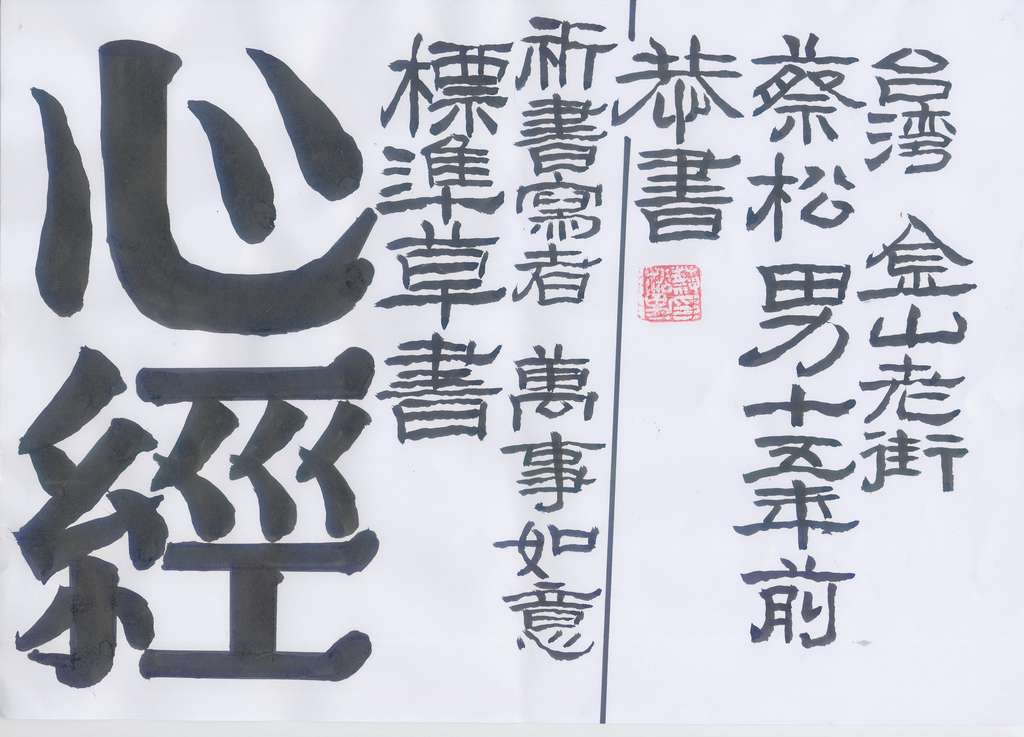 台湾 金山老街
蔡松男十五年前
恭書
祈書寫者 萬事如意
標準草書
心經